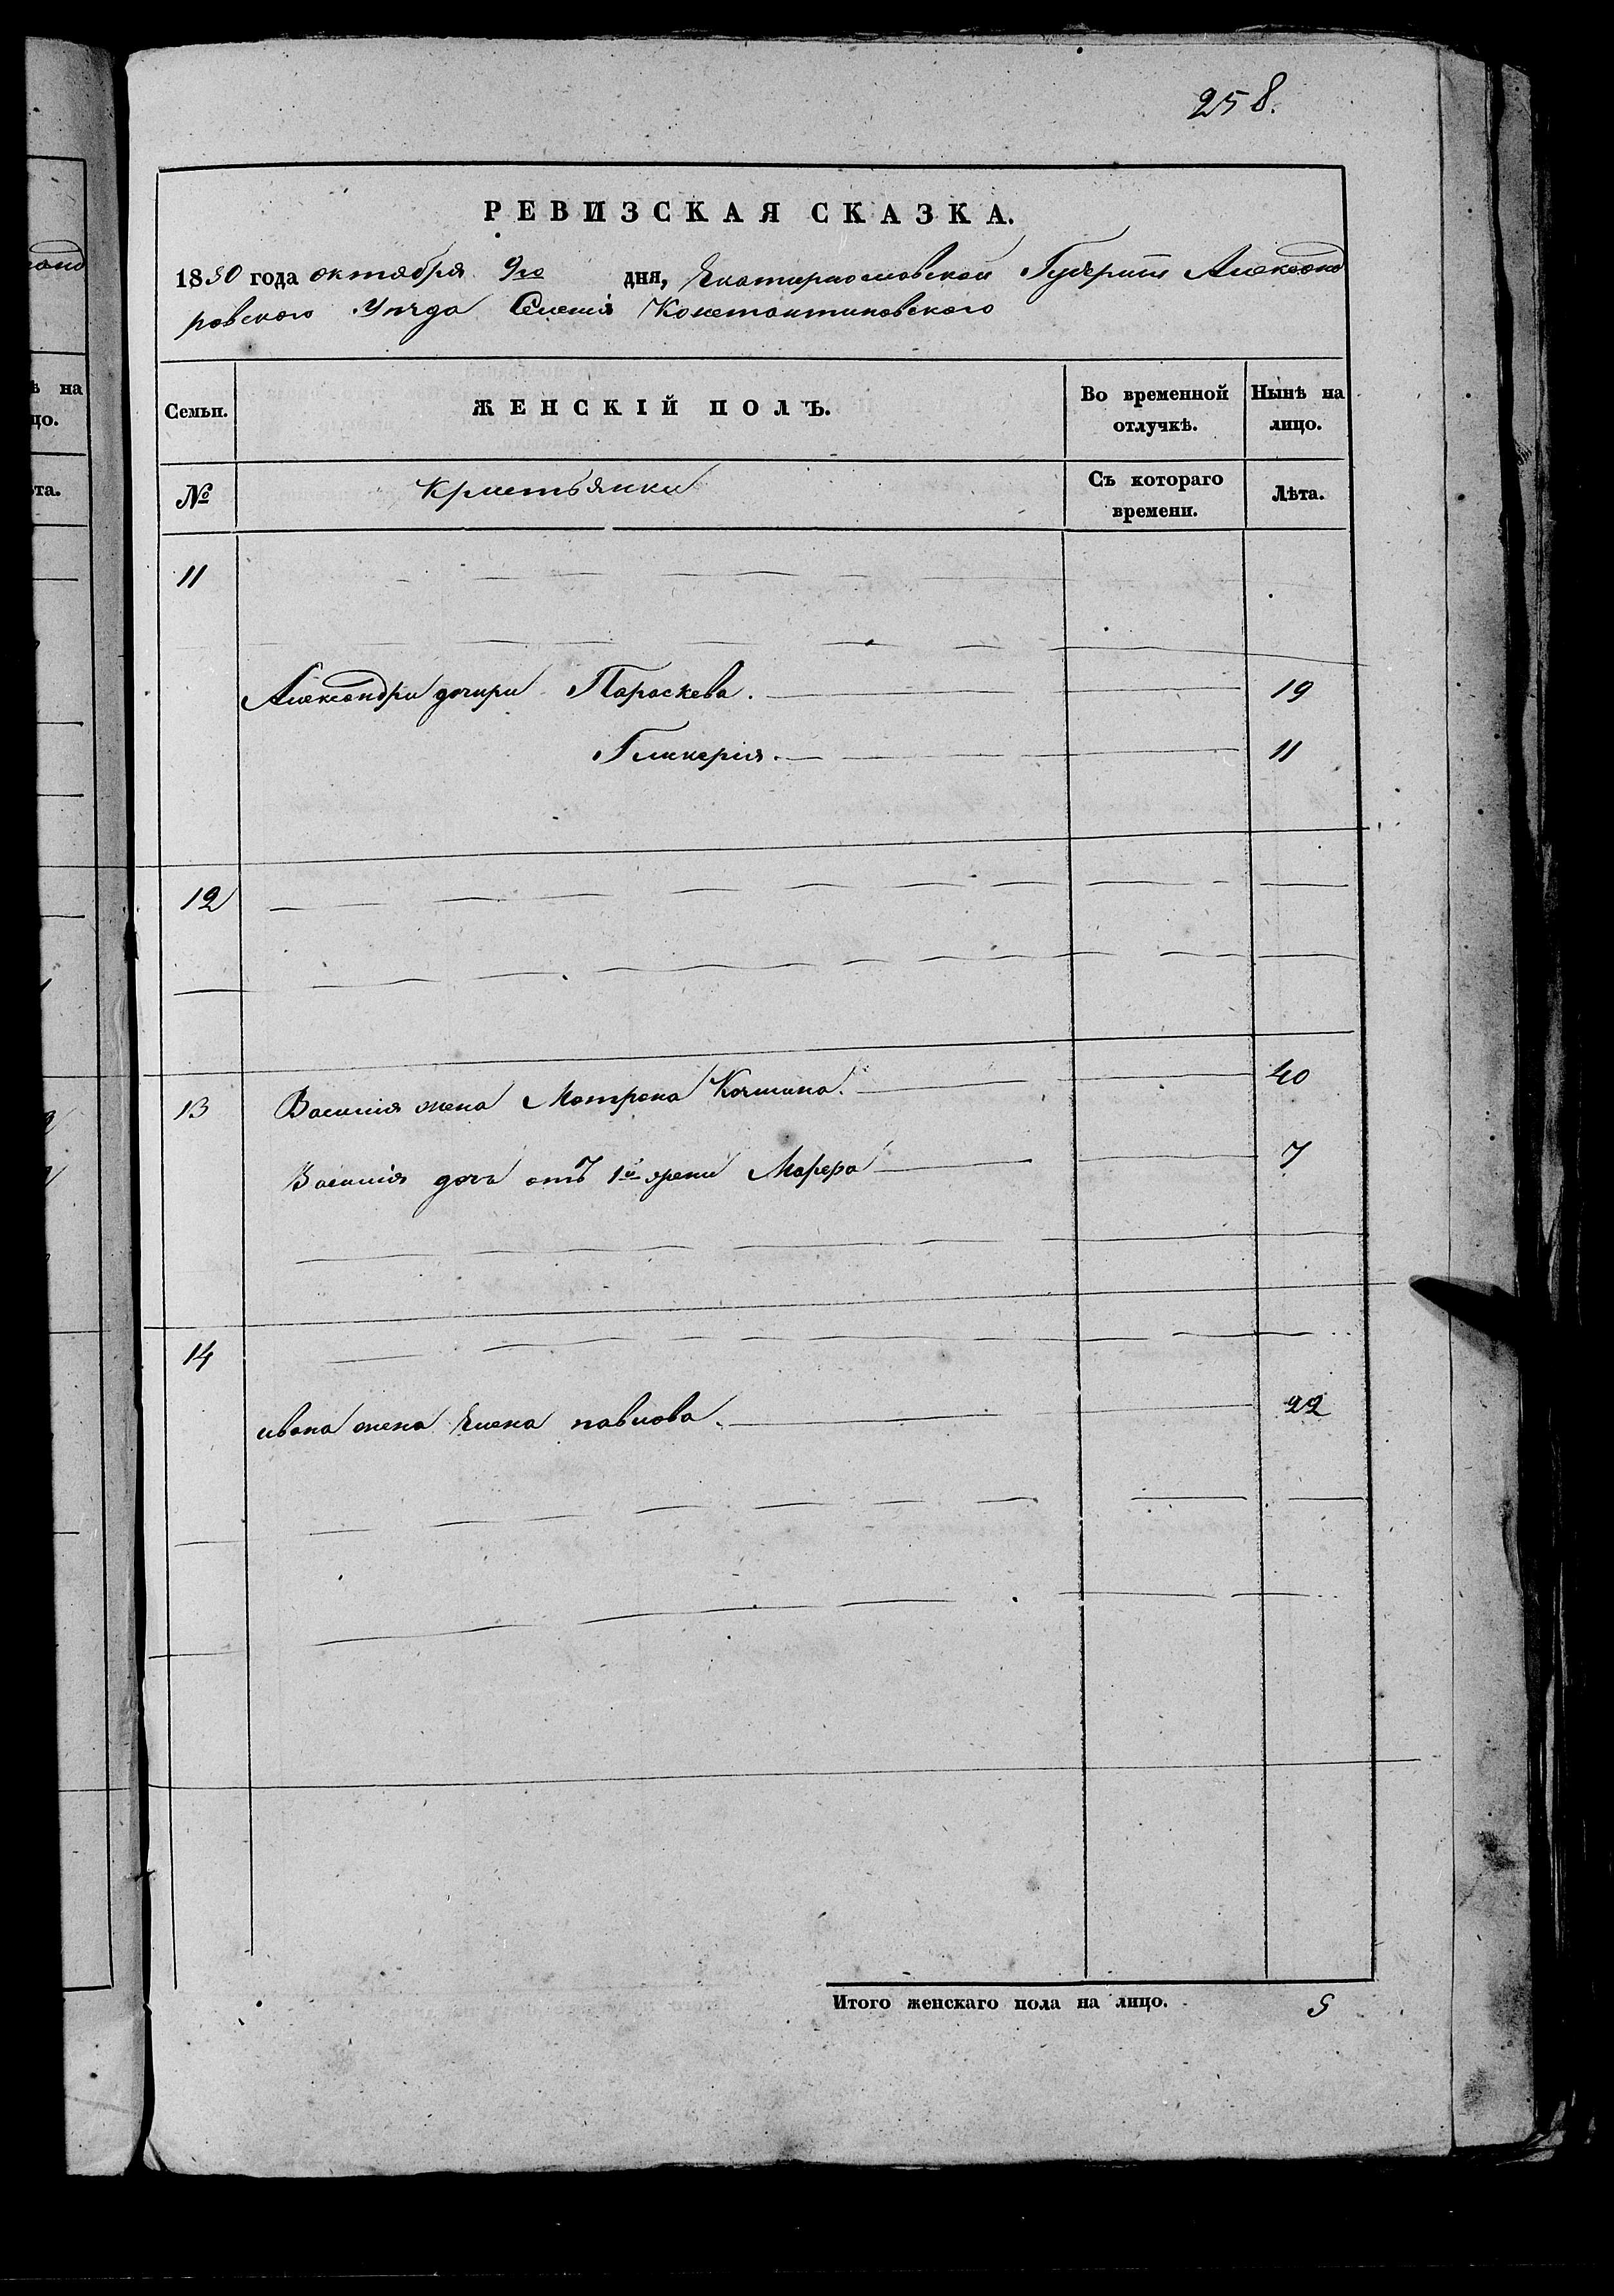 258.
РЕВИЗСКАЯ СКАЗКА.
1850 года октября 9го дня, Екатеринославской Губернии Александ
ровского Уезда Селенія Константиновского
Семьи. ЖЕНСКІЙ ПОЛЪ. Во временной отлучкѣ. Нынѣ на лицо.
№ Крестьянки Съ котораго времени. Лѣта.
11
Александра дочери Параскева. 19
Гликерія. 11
12
13 Василия жена Матрона 40
Василія дочь отъ 1й Марфа 7
14
ивана жена Елена павлова. 22
Итого женскаго пола на лицо. 5
ѣ на
цо.
ѣта.